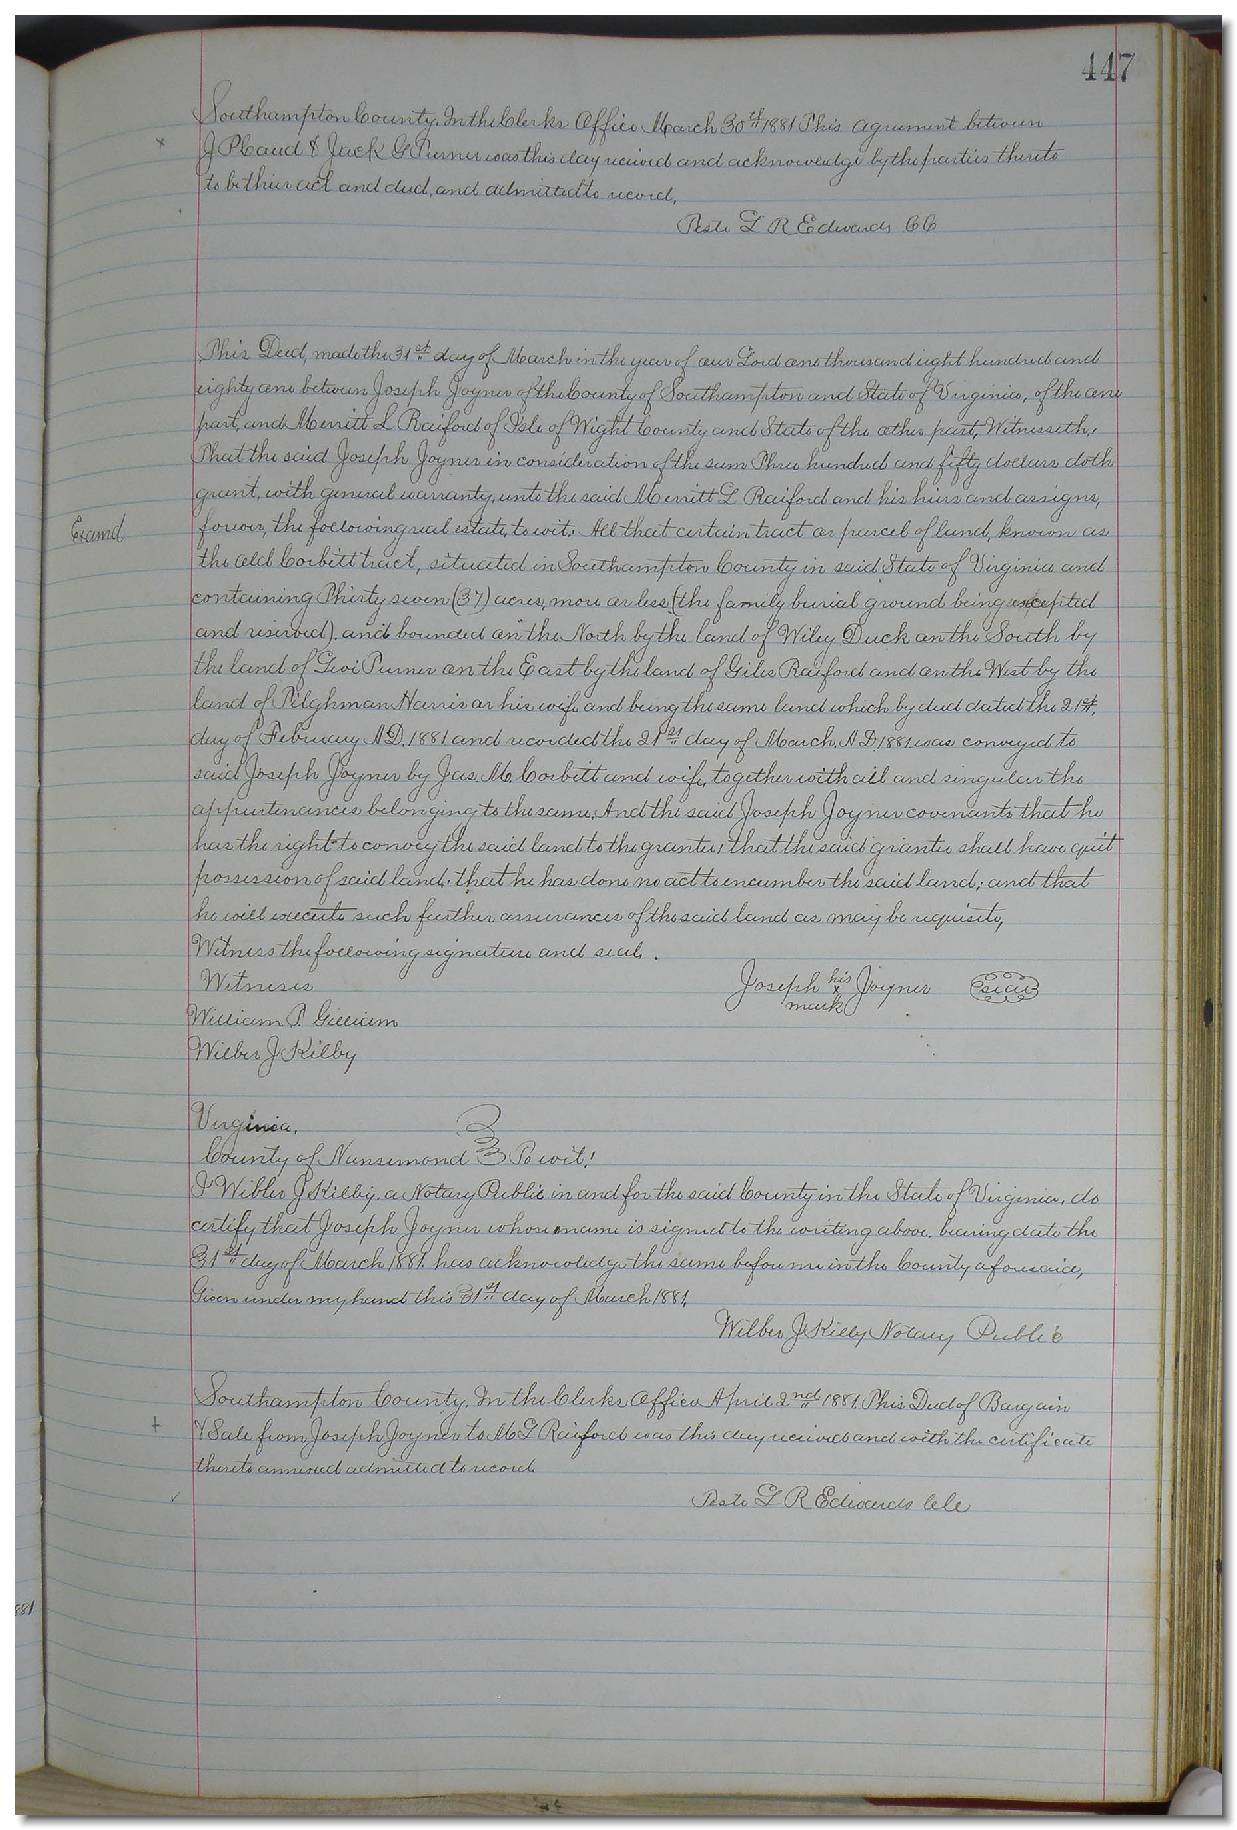 447
Southampton County. In the Clerks Office March 30th 1881 This agreement between
J P Gaud & Jack G Turner was this day received and acknowledge by the parties thereto
to be their act and deed, and admitted to record,
Teste L R Edwards CC
This Deed, made the 31st day of March in the year of our Lord one thousand eight hundred and
eighty one between Joseph Joyner of the County of Southampton and State of Virginia, of the one
part, and Merritt L Raiford of Isle of Wight County and State of the other part, Witnesseth,
That the said Joseph Joyner in consideration of the sum Three hundred and fifty dollars doth
grant, with general warranty, unto the said Merritt L Raiford and his heirs and assigns,
forever, the following real estate, to wit: All that certain tract or parcel of land, known as
Examd
the old Corbitt tract, situated in Southampton County in said State of Virginia and
containing Thirty seven (37) acres, more or less, (the family burial ground being excepted
and reserved) and bounded on the North by the land of Wiley Duck on the South by
the land of Levi Turner on the East by the land of Giles Raiford and on the West by the
land of Tilghman Harris or his wife, and being the same land which by deed dated the 21st,
day of February A.D. 1881 and recorded the 21st day of March A.D. 1881 was conveyed to
said Joseph Joyner by Jas. M. Corbitt and wife, together with all and singular the
appurtenances belonging to the same; And the said Joseph Joyner covenants that he
has the right to convey the said land to the grantee; that the said grantee shall have quit
possession of said land; that he has done no act to encumber the said land; and that
he will execute such further assurances of the said land as may be requisite,
Witness the following signature and seal.
Witness
Joseph his x mark Joyner seal
William P. Gilliam
Wilber J Kilby
Virginia,
County of Nansemond To wit!
I Wilber J Kilby, a Notary Public in and for the said County in the State of Virginia, do
certify that Joseph Joyner whose name is signed to the writing above, bearing date the
31st day of March 1881. has acknowledge the same before me in the County aforesaid,
Given under my hand this 31st day of March 1881,
Wilber J Kilby Notary Public
Southampton County. In the Clerks Office April 2nd 1881. This Deed of Bargain
& Sale from Joseph Joyner to M L Raiford was this day received and with the certificate
thereto annexed admitted to record
Teste L R Edwards Clc
881